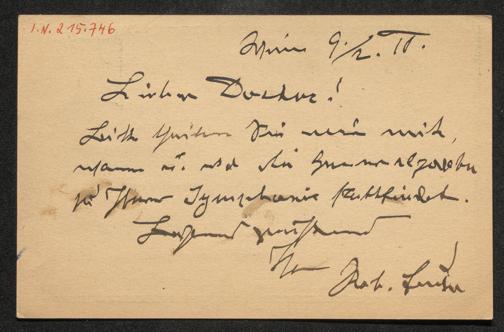 I.N. 215.746
Wien 9./2. 11.
Lieber Doctor!
Bitte theilen Sie mir mit,
wann u. wo die Generalprobe
zu Ihrer Symphonie stattfindet.
grüßend
Ihr
Rob.